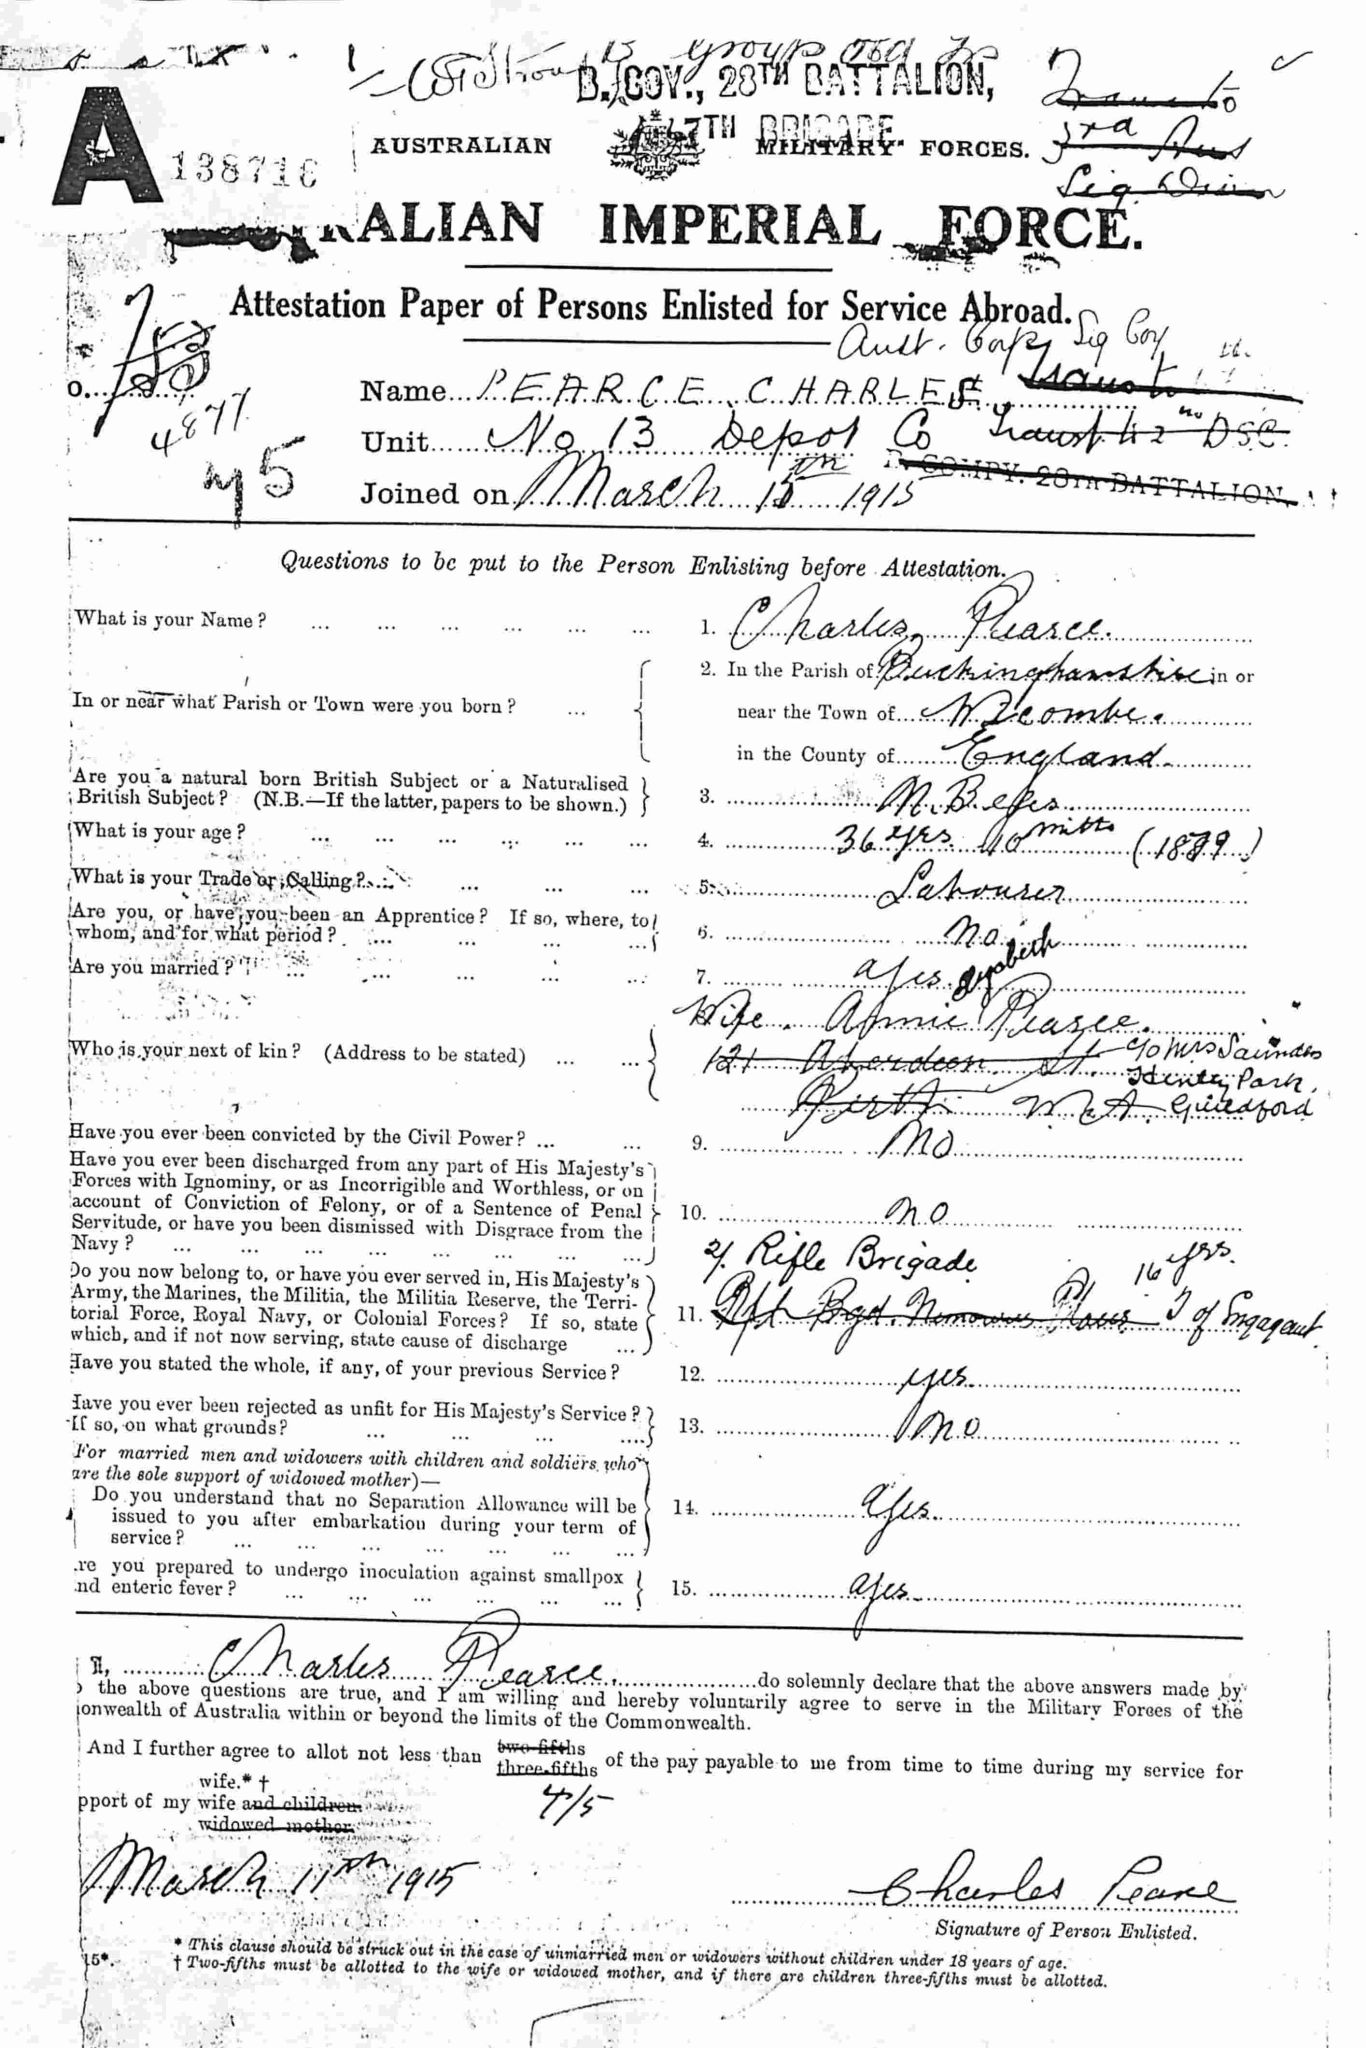 B. COY., 28TH BATTALION,
7TH BRIGADE.
A
138716
AUSTRALIAN MILITARY FORCES.
Trans to
3rd Aus
Sig Divn
RALIAN IMPERIAL FORCE.
Attestation Paper of Persons Enlisted for Service Abroad.
Aust. Corps Sig Coy
4877
Name PEARCE CHARLES
Unit No 13 Depot Co
D. COMPY. 28TH BATTALION.
Joined on March 1915
Questions to be put to the Person Enlisting before Attestation.
What is your Name? ... 1. Charles Pearce.
In or near what Parish or Town were you born? ...
2. In the Parish of Buckinghamshire in or
near the Town of Wycombe.
in the County of England.
Are you a natural born British Subject or a Naturalised
British Subject? (N.B.—If the latter, papers to be shown.)
3. N.B. yes.
What is your age? ... 4. 36 yrs 10 mths (1879)
What is your Trade or Calling? ... 5. Labourer
Are you, or have you been an Apprentice? If so, where, to
whom, and for what period? ... 6. no
Are you married? ... 7. yes.
Wife. Annie Pearce.
Who is your next of kin? (Address to be stated) ...
121 Aberdeen St. c/o Mrs Saunders
Henley Park,
Perth W.A. Guildford
Have you ever been convicted by the Civil Power? ... 9. No
Have you ever been discharged from any part of His Majesty's
Forces with Ignominy, or as Incorrigible and Worthless, or on
account of Conviction of Felony, or of a Sentence of Penal
Servitude, or have you been dismissed with Disgrace from the
Navy? ...
10. no
Rifle Brigade 16 yrs.
Do you now belong to, or have you ever served in, His Majesty's
Army, the Marines, the Militia, the Militia Reserve, the Terri-
torial Force, Royal Navy, or Colonial Forces? If so, state
which, and if not now serving, state cause of discharge ...
11. T of Engagaut.
Have you stated the whole, if any, of your previous Service? 12. yes.
Have you ever been rejected as unfit for His Majesty's Service?
If so, on what grounds? ... 13. No
For married men and widowers with children and soldiers who
are the sole support of widowed mother)—
Do you understand that no Separation Allowance will be
issued to you after embarkation during your term of
service? ...
14. yes.
re you prepared to undergo inoculation against smallpox
nd enteric fever? ... 15. yes.
I, Charles Pearce do solemnly declare that the above answers made by
o the above questions are true, and I am willing and hereby voluntarily agree to serve in the Military Forces of the
onwealth of Australia within or beyond the limits of the Commonwealth.
And I further agree to allot not less than two-fifths three-fifths of the pay payable to me from time to time during my service for
4/5
wife.* †
pport of my wife and children
widowed mother
March 11th 1915
Charles Pearce
Signature of Person Enlisted.
* This clause should be struck out in the case of unmarried men or widowers without children under 18 years of age.
15*. † Two-fifths must be allotted to the wife or widowed mother, and if there are children three-fifths must be allotted.